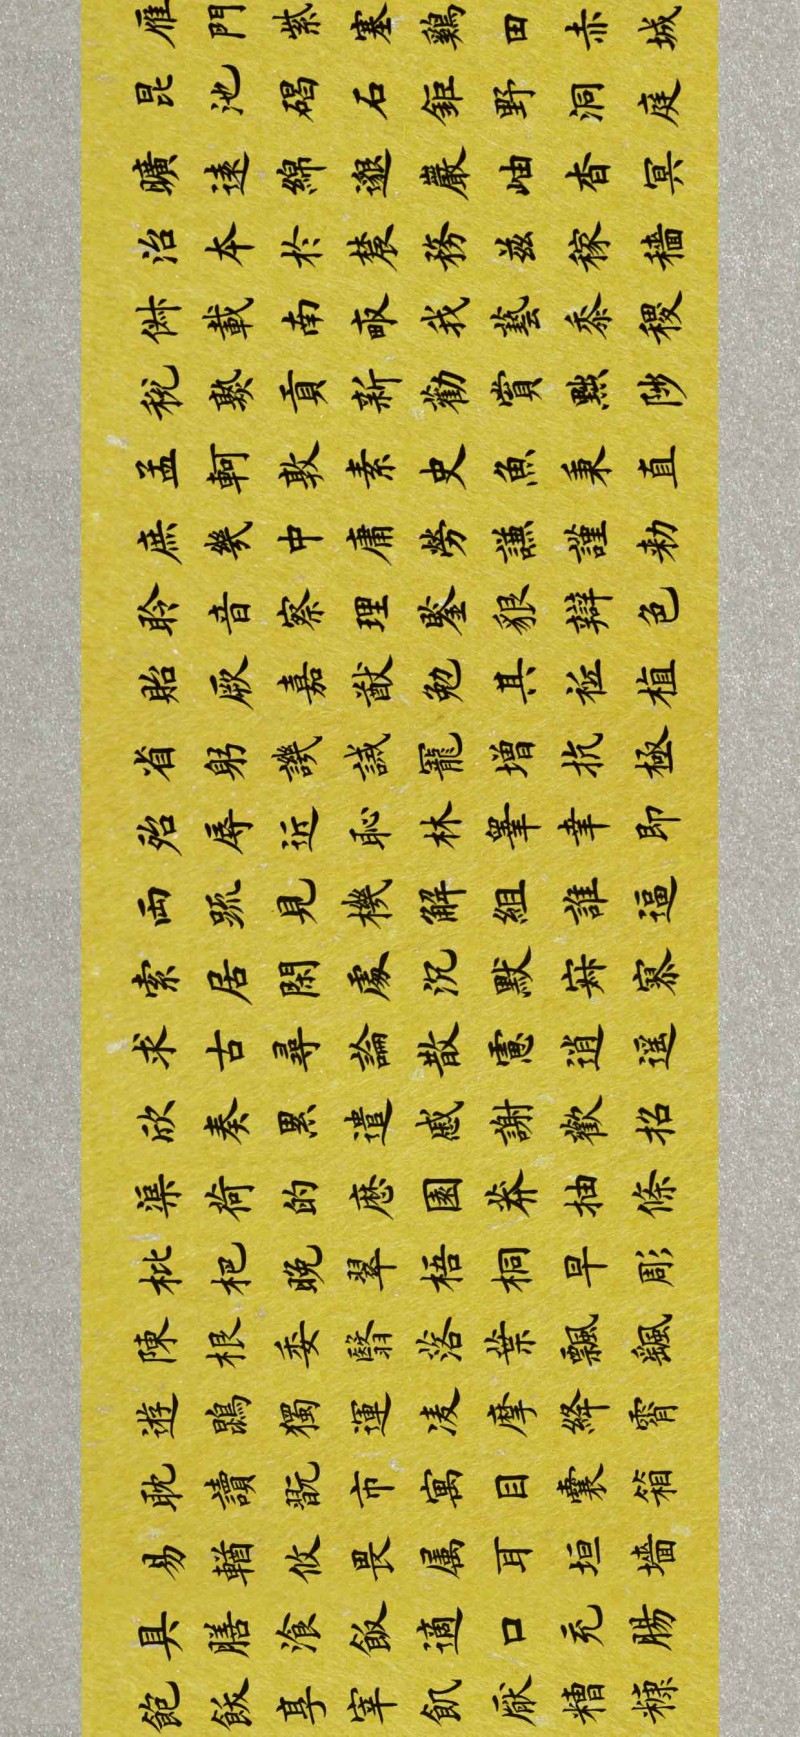 雁門紫塞鷄田赤城
昆池碣石鉅野洞庭
曠遠綿邈巖岫杳冥
治本於農務兹稼穡
俶載南畝我藝黍稷
稅熟貢新勸賞黜陟
孟軻敦素史魚秉直
庶幾中庸勞謙謹勑
聆音察理鑒貌辯色
貽厥嘉猷勉其祗植
省躬譏誡寵增抗極
殆辱近恥林皋幸即
兩疏見機解組誰逼
索居閑處沉默寂寥
求古尋論散慮逍遥
欣奏累遣慼謝歡招
渠荷的歷園莽抽條
枇杷晚翠梧桐早彫
陳根委翳落葉飄颻
遊鵾獨運凌摩絳霄
耽讀翫市寓目囊箱
易輶攸畏属耳垣墻
具膳飡飯適口充腸
飽飫享宰飢厭糟糠